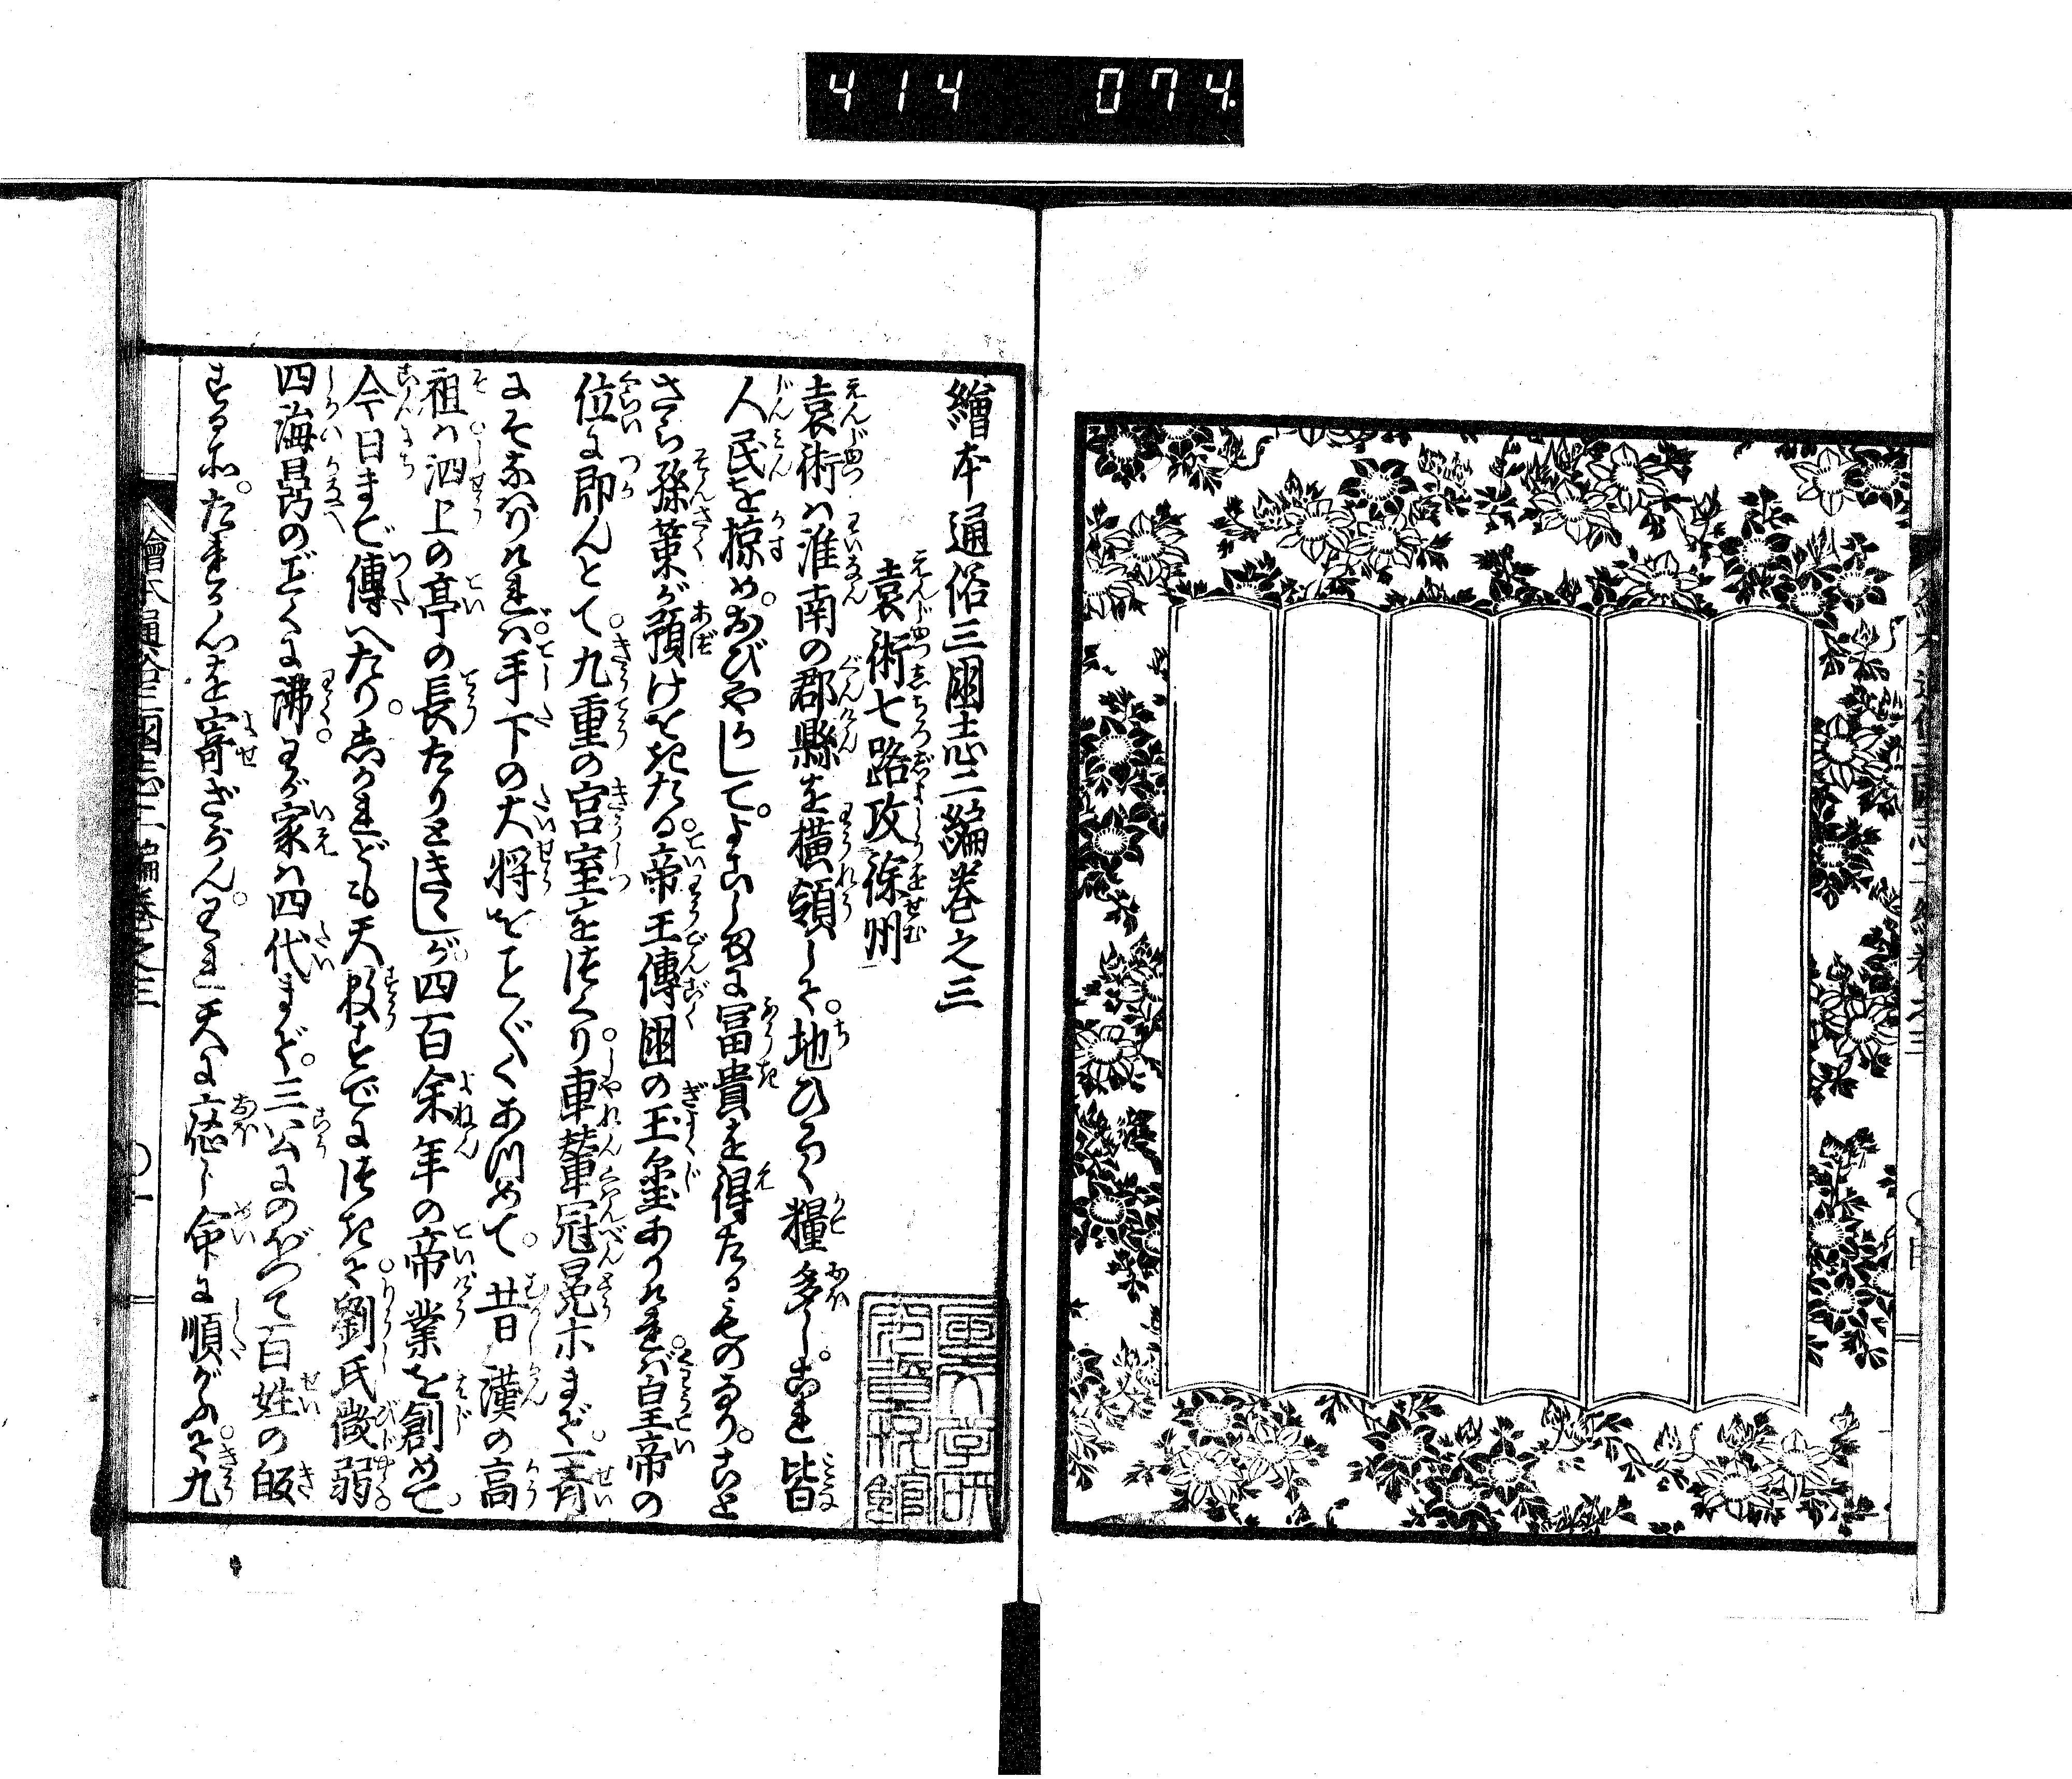 414 074.
繪本通俗三國志二編卷之三
袁術七路攻徐州
袁術ハ淮南の郡縣を横領して。地ひろく糧多し。これ皆
人民を掠め。おびやかして。よこしまに冨貴を得たるものなり。こと
さら孫策が預けをきたる。帝王傳國の玉璽ありけれバ。皇帝の
位に即んとて。九重の宮室をつくり。車輦冠冕ホまで。一斉
にそなハりけれバ。手下の大将をことごとくあつめて。昔漢の高
祖ハ泗上の亭の長たりときこしが。四百余年の帝業を創めて。
今日まで傳へたり。志かれども天数すでにつきて。劉氏微弱。
四海鼎のごとくに沸。わが家ハ四代まで。三公にのぼつて百姓の皈
するホ。たれか心を寄ざらん。われ天に應じ命に順がふて。九
繪本通俗三國志二編卷之三